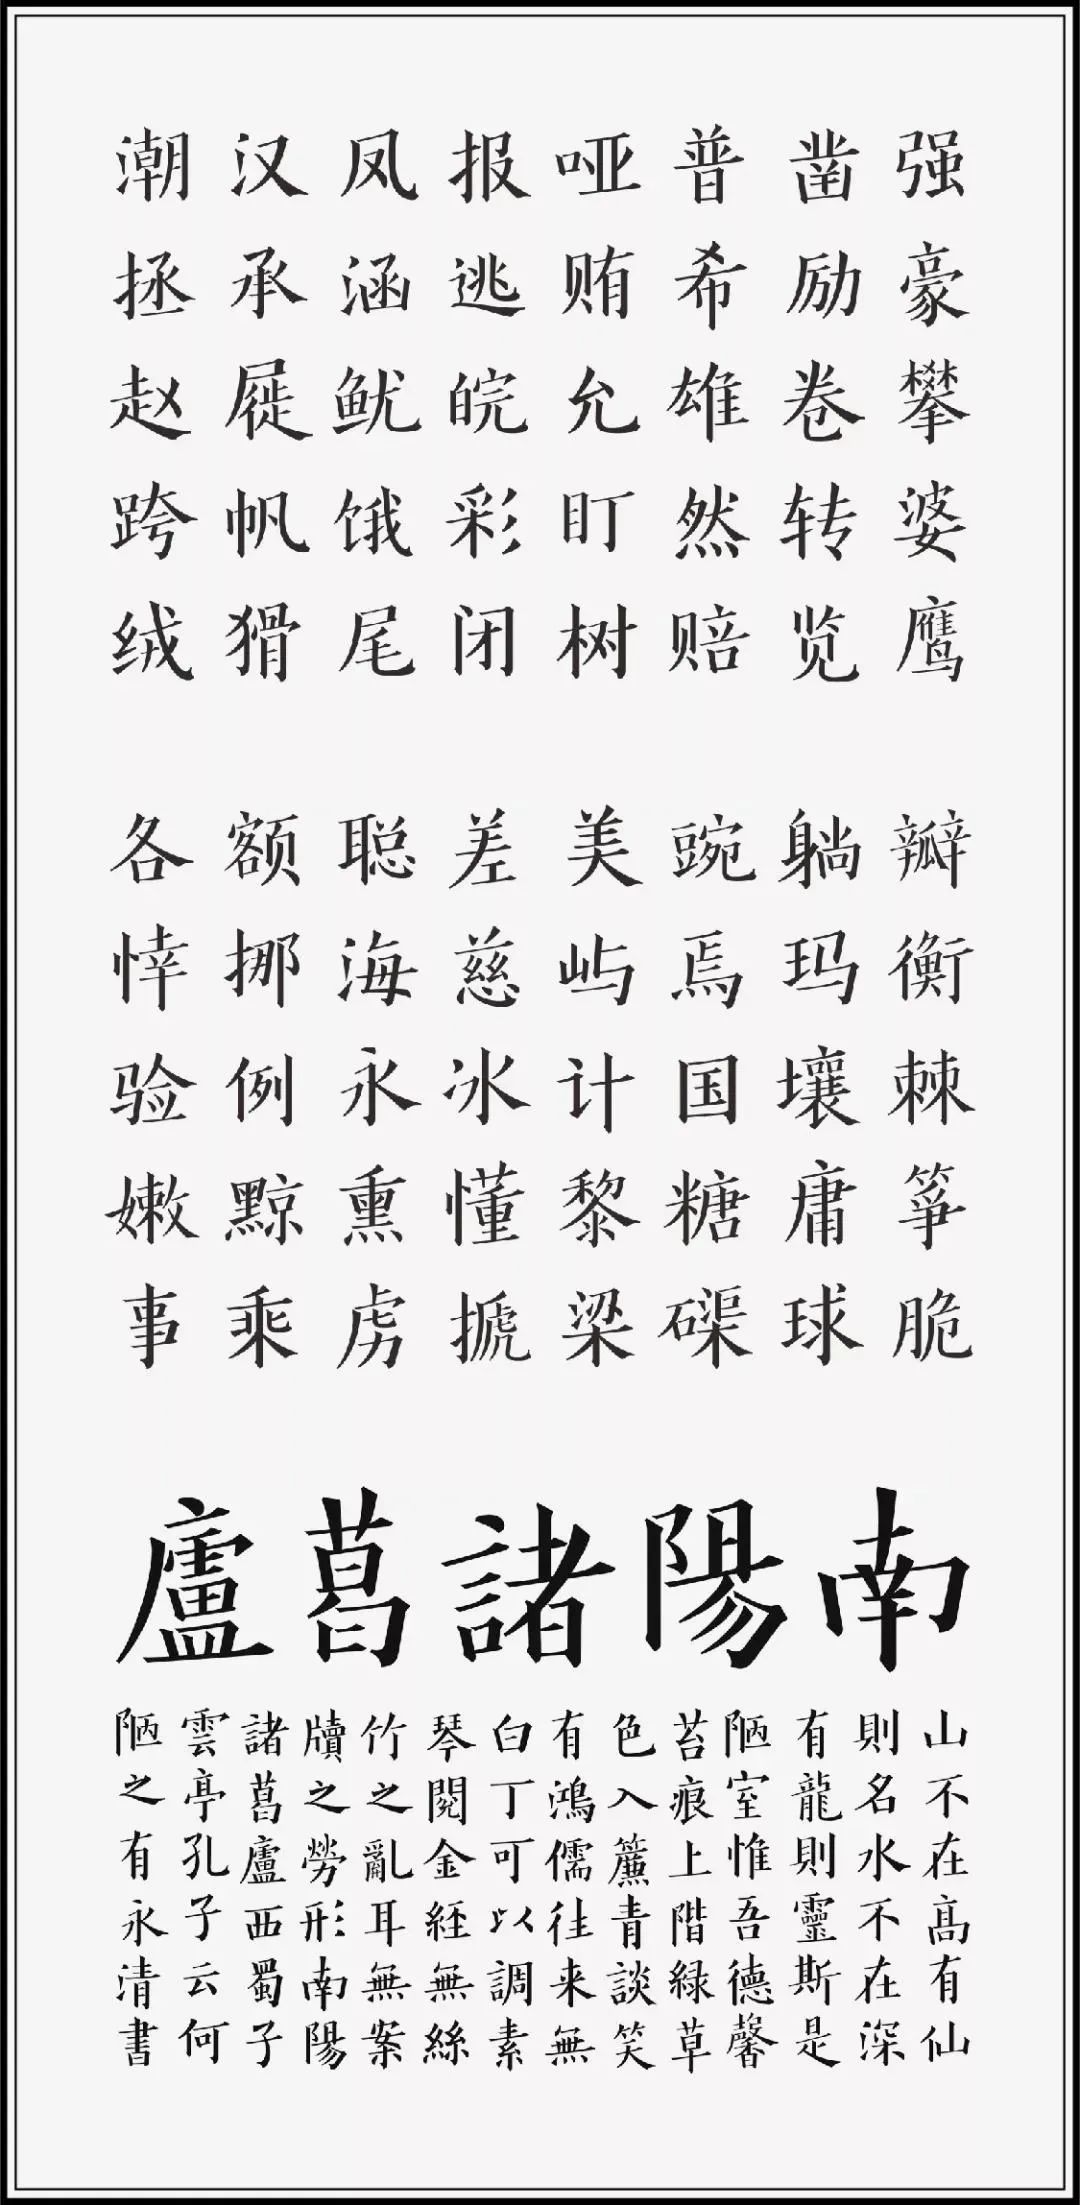 潮汉凤报哑普凿强
拯承涵逃贿希励豪
赵屣鱿皖允雄卷攀
跨帆饿彩盯然转婆
绒猾尾闭树赔览鹰
各额聪差美豌躺瓣
悻挪海慈屿焉玛衡
验例永冰计国壤棘
嫩黥熏懂黎糖庸筝
事乘虏搋梁磲球脆
南陽諸葛廬
山不在髙有仙
則名水不在深
有龍則靈斯是
陋室惟吾德馨
苔痕上階緑草
色入簾青談笑
有鴻儒往来無
白丁可以調素
琴閱金経無絲
竹之亂耳無案
牘之勞形南陽
諸葛廬西蜀子
雲亭孔子云何
陋之有永清書